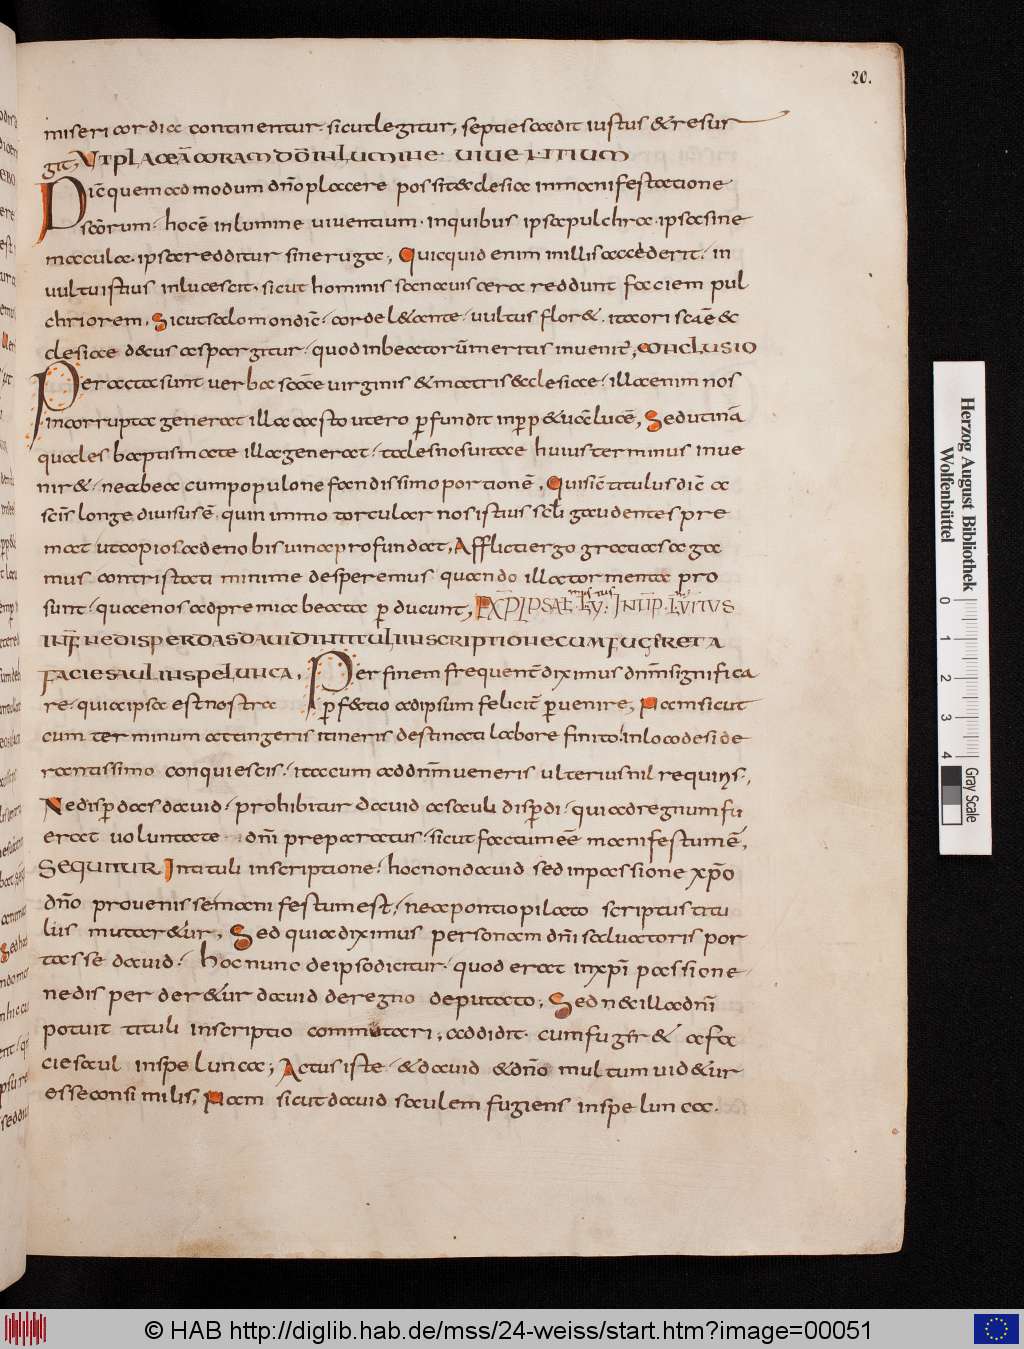 20.
misericordiae continentur. sicut legitur, septies cadit iustus & resur
git, UT PLACEĀ CORAM DŌ IN LUMINE UIUENTIUM
Dic̄ quemadmodum dn̄o placere possit ecclesiae in manifestatione
sc̄orum. hoc ē in lumine uiuentium. in quibus ipsa pulchra. ipsa sine
macula. ipsa redditur sine ruga; Quicquid enim in illis accederit. in
uultu istius inlucescit. sicut hominis sana uiscera reddunt faciem pul
chriorem. Sicut salomon dic̄. corde l&ante. uultus flor&. ita cori scāē ec
clesiae decus aspargitur. quod in beatorū meritis inuenit̄, CONCLUSIO
Peracta sunt uerba scācē uirginis & matris ecclesiae. illa enim nos
incorrupta generat illa casto utero perfundit in perp&uā lucē, Sed utinā
quales baptismate illa generat. tales nos uitae huius terminus inue
nir&. ne ab ea cum populo nefandissimo portionē. Qui sic̄ titulus dic̄ a
sc̄is longe diuisus ē. quin immo torcular nos istius scl̄i gaudentes pre
mat ut copiosa de nobis uina profundat. Afflicti ergo gratias aga
mus contristati minime desperemus quando illa tormenta pro
sunt. quae nos ad premia beata perducunt,
IN FINE DISPERDAS DAUID IN TITULI INSCRIPTIONE CUM FUGIRET A
FACIE SAUL IN SPELUNCA. Per finem frequenē diximus dnm̄ significa
re. quia ipsa est nostra perf&tio ad ipsum felicit̄ peruenire, Nam sicut
cum terminum attingeris itineris destinati labore finito. in loco deside
rantissimo conquiescis. ita cum ad dnm̄ ueneris ulterius nil requiris.
Ne disperdas dauid. prohibitur dauid a sauli disperdi. qui ad regnum fu
erat uoluntate dn̄i preparatus. sicut factum eē manifestum ē,
SEQUITUR In tituli inscriptione. hoc non dauid sed in passione xp̄o
dn̄o prouenisse manifestum est. ne a pontio pilato scriptus titu
lus mutar&ur, Sed quia diximus personam dn̄i saluatoris por
tasse dauid. hoc nunc de ipso dicitur. quod erat in xp̄i passione
ne disperder&ur dauid de regno deputato, Sed ne & illa dn̄i
potuit tituli inscriptio commutari, addidit. cum fuger& a fa
cie saul in spelunca; Actus iste. & dauid & dn̄o multum uid&ur
esse consimilis, Nam sicut dauid saulem fugiens in spelunca.
Herzog August Bibliothek
Wolfenbüttel
0 1 2 3 4
Gray Scale
© HAB http://diglib.hab.de/mss/24-weiss/start.htm?image=00051